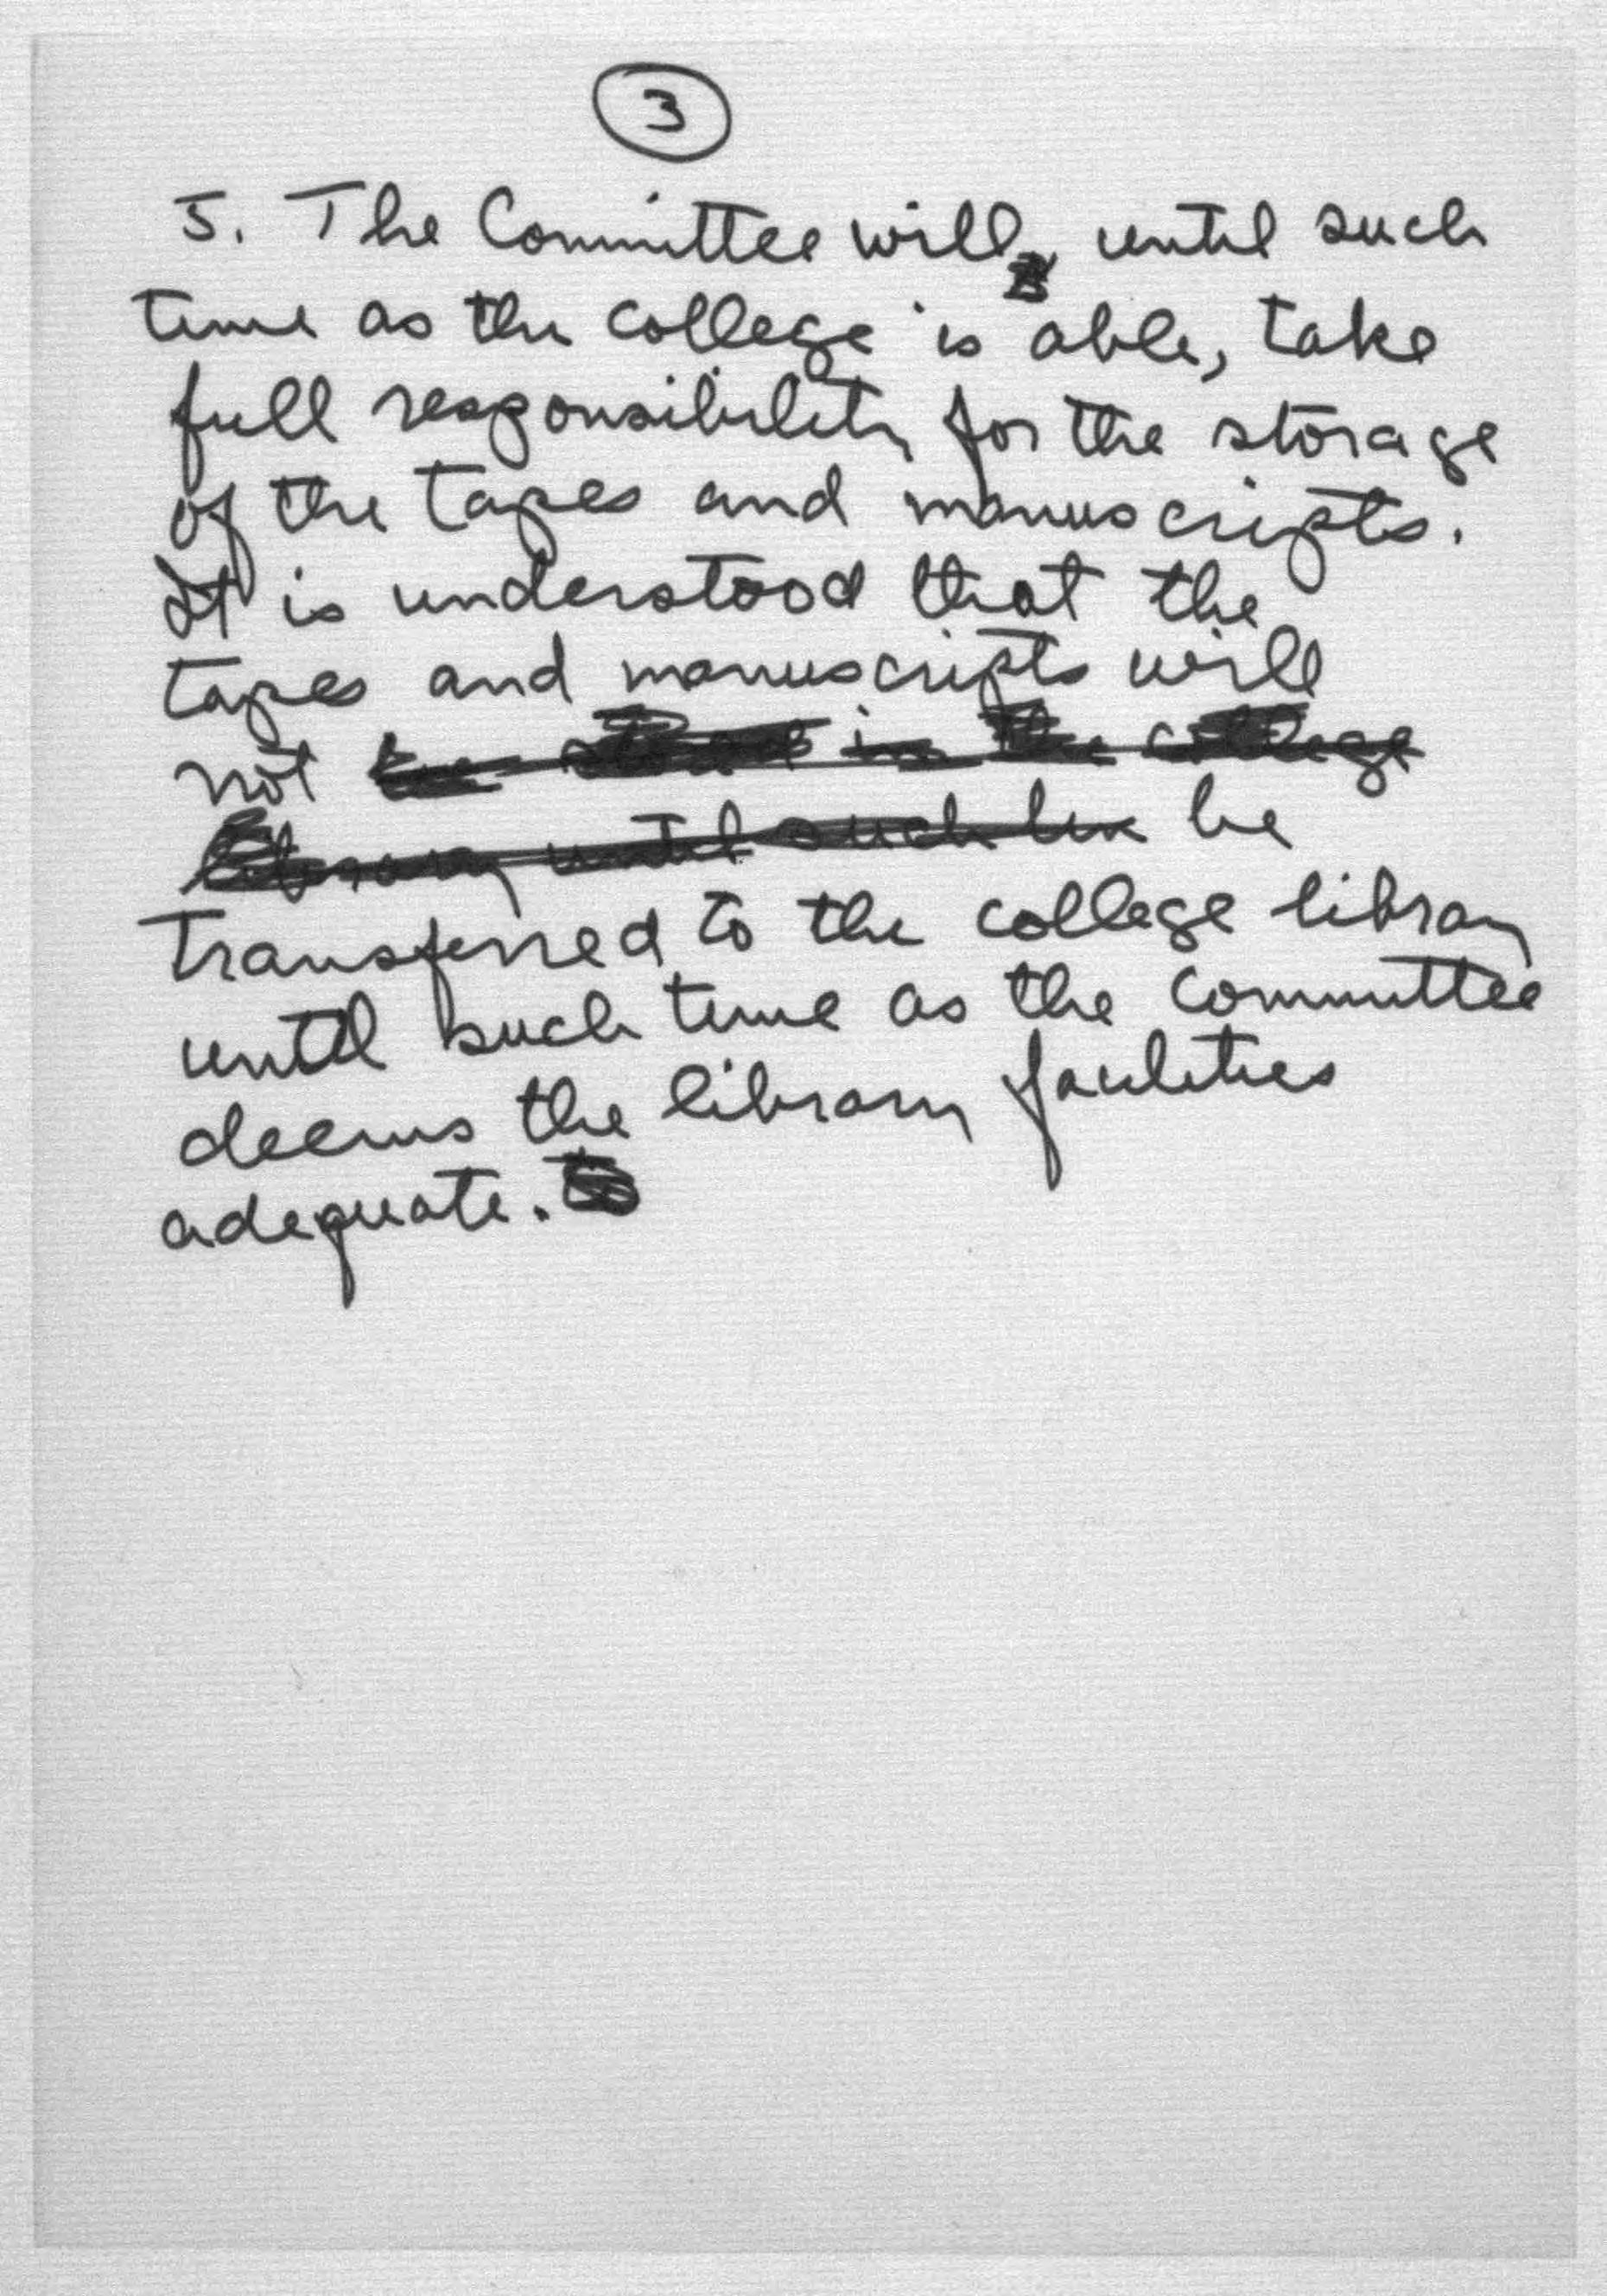 3
5. The Committee will, until such
time as the college is able, take
full responsibility for the storage
of the tapes and manuscripts.
It is understood that the
tapes and manuscripts will
not be stored in the college
library until such be
transferred to the college library
until such time as the committee
deems the library facilities
adequate.